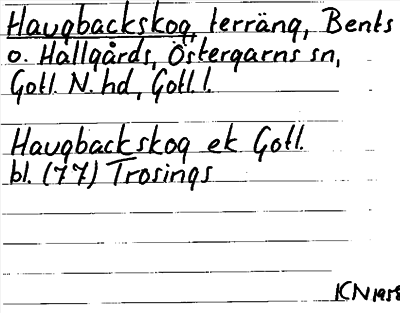 Haugbackskog, terräng, Bents
o. Hallgårds, Östergarns sn,
Gotl. N. hd, Gotl. l.
Haugbackskog ek Gotl.
bl. (77) Trosings
KN 1958